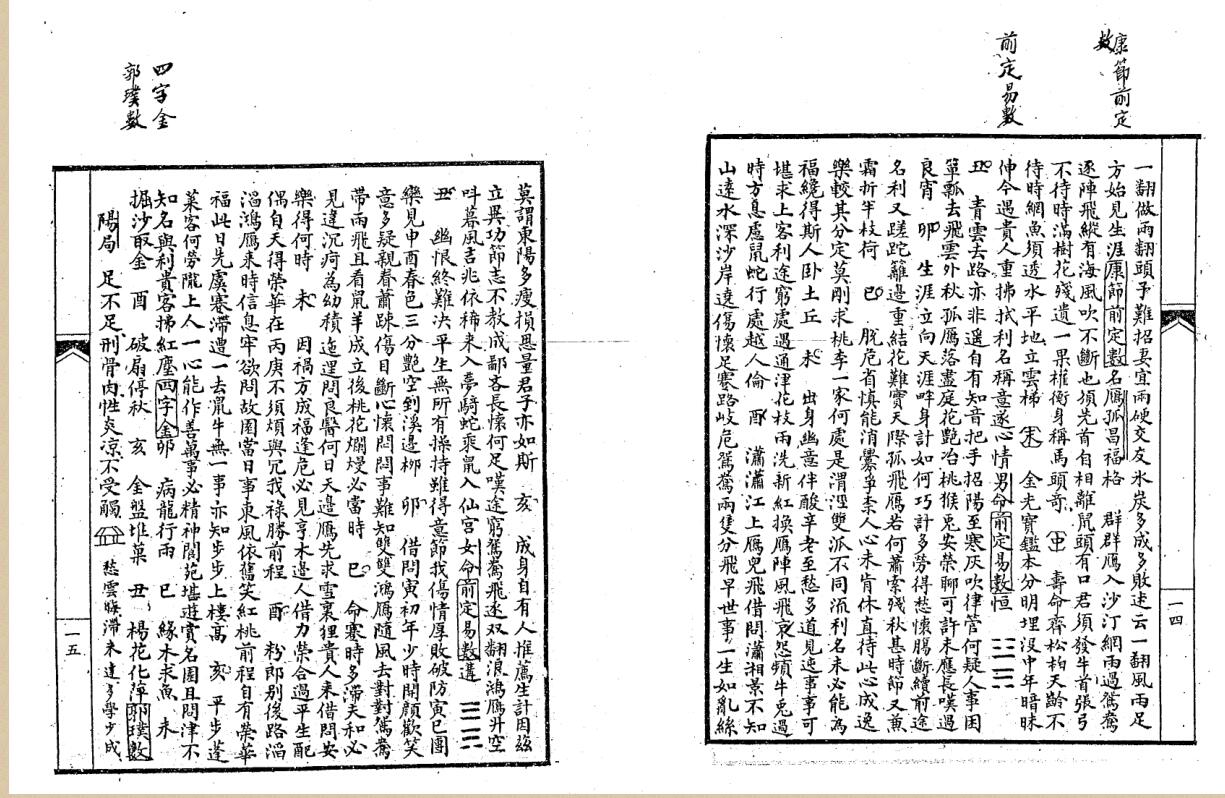 康節前定數
前定易數
一翻做兩翻頭子難招妻宜兩硬交友氷炭多成多敗訣云一翻風雨足
方始見生涯康節前定數名鴈孤昌福格 群群鴈入沙汀網雨過鴛鴦
逐陣飛縱有海風吹不斷也須先首自相離鼠頭有口君須發牛首張弓
不待時滿樹花殘遺一果權衡身稱馬頭奇 申 壽命齊松栢天齡不
待時網魚須透水平地立雲梯 未 金光寶鑑本分明埋沒中年暗昧
伸今遇貴人重拂拭利名稱意遂心情男命前定易數恒
丑 青雲去路亦非遥自有知音把手招陽至寒灰吹律管何疑人事困
簞瓢去飛雲外秋孤鴈落盡庭花艷冶桃猴兎安榮聊可許未應長嘆過
良宵 卯 生涯立向天涯畔身計如何巧計多勞得愁懷腸斷續前途
名利又蹉跎籬邊重結花難實天際孤飛鴈若何蕭索殘秋甚時節又兼
霜折半枝荷 巳 脫危省慎能消釁爭柰人心未肯休直待此心成逸
樂較其分定莫剛求桃李一家何處是渭涇雙派不同流利名未必能為
福纔得斯人卧土丘 未 出身幽意伴酸辛老至愁多道見迍事事可
堪求上客利途窮處遇通津花枝雨洗新紅換鴈陣風飛哀怨頻牛兎過
時方息慮鼠蛇行處越人倫 酉 瀟瀟江上鴈兒飛借問瀟湘景不知
山遠水深沙岸遶傷懷足蹇路岐危鴛鴦兩隻分飛早世事一生如亂絲
一四
四字金
郭璞數
莫謂東陽多瘦損思量君子亦如斯 亥 成身自有人推薦生計因玆
立異功節志不教成鄙吝長懷何足嘆途窮鴛鴦飛逐双翻浪鴻鴈升空
呌暮風吉兆依稀来入夢騎蛇乘鼠入仙宮女命前定易數遘
丑 幽恨終難決平生無所有操持雖得意節我傷情厚敗破防寅巳團
樂見申酉春色三分艷空到溪邊栁 卯 借問寅初年少時開顏歡笑
意多疑親眷蕭踈傷目斷心懷悶悶事難知雙雙鴻鴈隨風去對對鴛鴦
帶雨飛且看鼠羊成立後桃花爛熳必當時 巳 命蹇時多滯天和必
見違沉疴為幼積迤逗問良醫何日天邊鴈先求雪裏狸貴人来借問安
樂得何時 未 因禍方成福逢危必見亨木邊人借力榮合過平生配
偶自天得榮華在丙庚不須煩與冗我祿勝前程 酉 粉郎别後路滔
滔鴻鴈来時信息牢欲問故園當日事東風依舊笑紅桃前程自有榮華
福此日先虞蹇滯遭一去鼠牛無一事亦知步步上樓高 亥 平步蓬
萊客何勞隴上人一心能作善萬事必精神閬苑堪遊賞名園且問津不
知名與利貴客拂紅塵四字金卯 病龍行雨 巳 緣木求魚 未
掘沙取金 酉 破扇停秋 亥 金盤堆菓 丑 楊花化萍郭璞數
陽局 足不足刑骨肉性炎凉不受觸 愁雲睽滯未達多學少成
一五